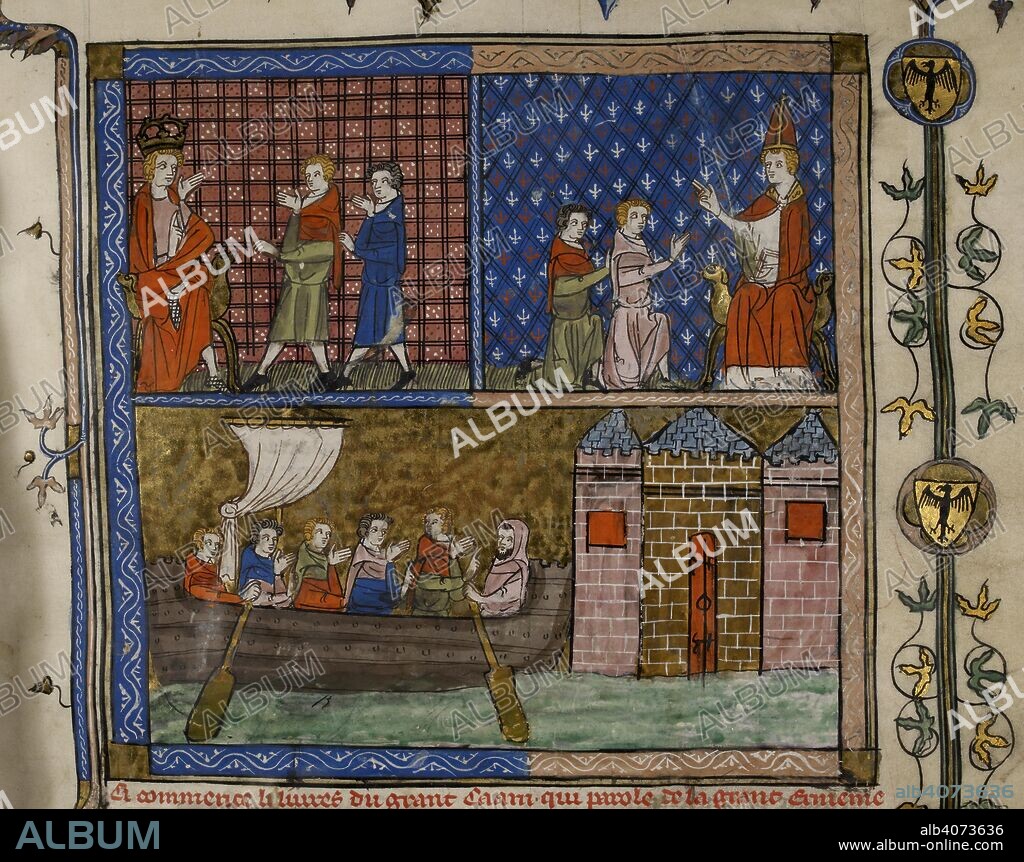 Ci commence li liures du grant Caam qui parole de la grant Ermenie
alb4073636
ALBUM
alb4073636
www.album-online.com